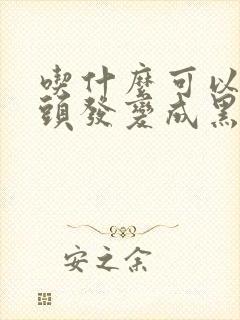 喫什麼可以
頭發變成黑
安之余